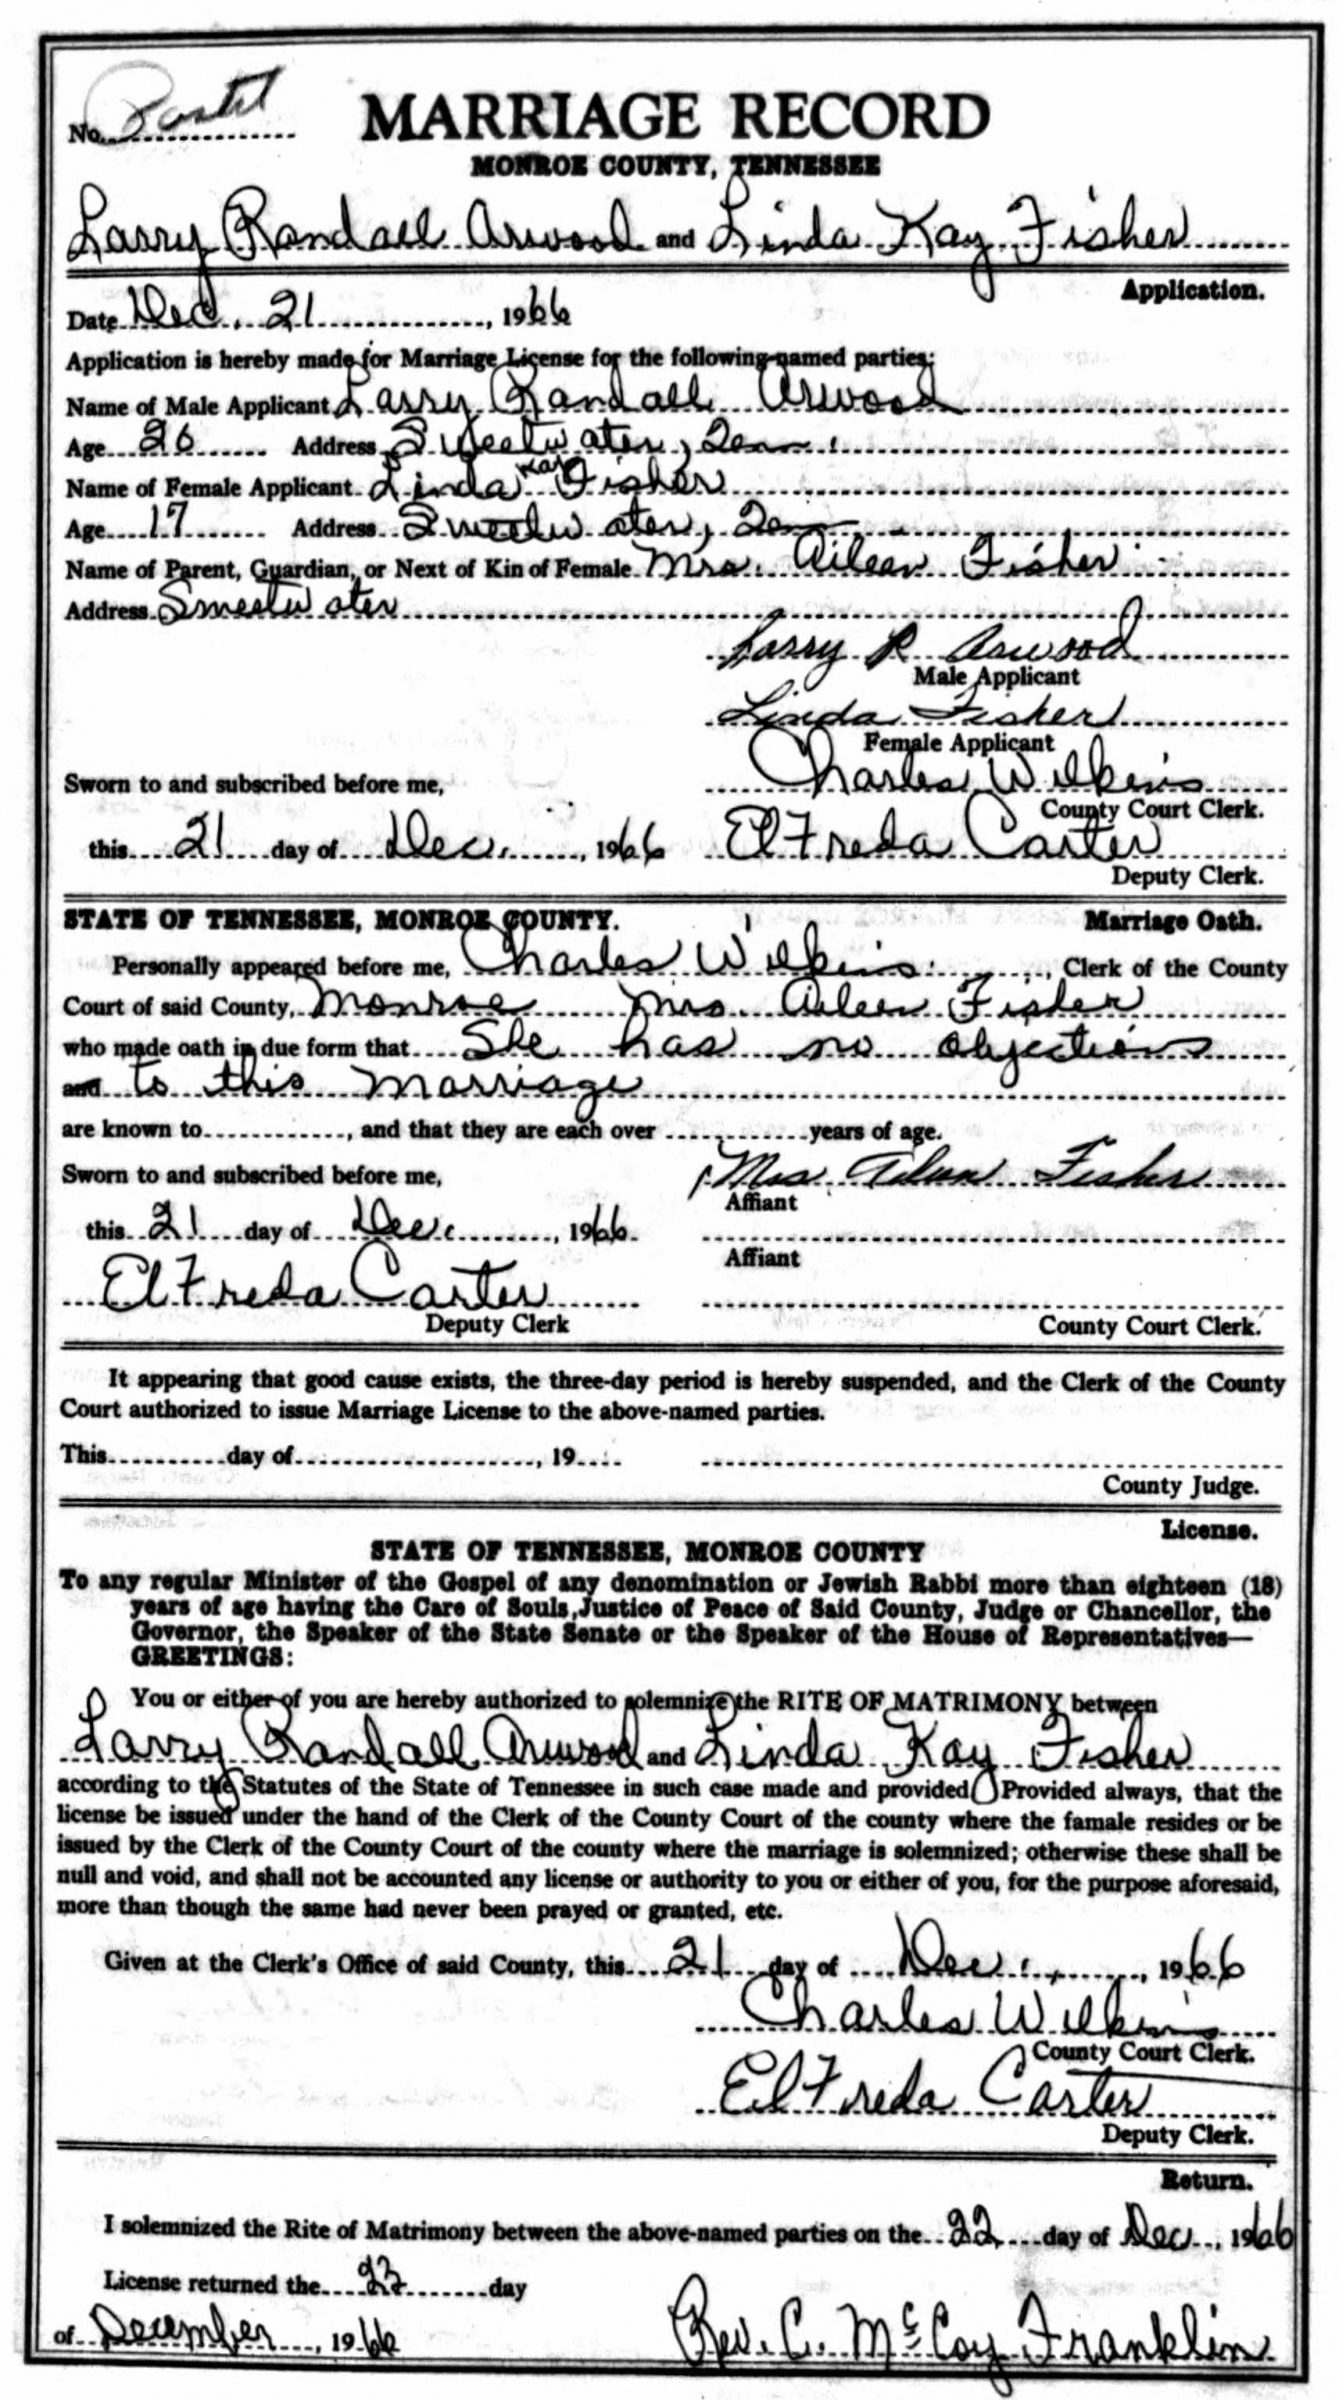 No. Posted
MARRIAGE RECORD
MONROE COUNTY, TENNESSEE
Larry Randall Arwood and Linda Kay Fisher
Application.
Date Dec. 21, 1966
Application is hereby made for Marriage License for the following-named parties:
Name of Male Applicant Larry Randall Arwood
Age 20 Address Sweetwater, Tenn.
Name of Female Applicant Linda Kay Fisher
Age 17 Address Sweetwater, Tenn
Name of Parent, Guardian, or Next of Kin of Female Mrs. Aileen Fisher
Address Sweetwater
Larry R Arwood
Male Applicant
Linda Fisher
Female Applicant
Sworn to and subscribed before me, Charles Wilkins
County Court Clerk.
this 21 day of Dec., 1966 ElFreda Carter
Deputy Clerk.
STATE OF TENNESSEE, MONROE COUNTY. Marriage Oath.
Personally appeared before me, Charles Wilkins, Clerk of the County
Court of said County, Monroe Mrs. Aileen Fisher
who made oath in due form that She has no objections
and to this marriage
are known to, and that they are each over years of age.
Sworn to and subscribed before me, Mrs Aileen Fisher
Affiant
this 21 day of Dec., 1966.
Affiant
ElFreda Carter
Deputy Clerk County Court Clerk.
It appearing that good cause exists, the three-day period is hereby suspended, and the Clerk of the County
Court authorized to issue Marriage License to the above-named parties.
This day of, 19
County Judge.
License.
STATE OF TENNESSEE, MONROE COUNTY
To any regular Minister of the Gospel of any denomination or Jewish Rabbi more than eighteen (18)
years of age having the Care of Souls, Justice of Peace of Said County, Judge or Chancellor, the
Governor, the Speaker of the State Senate or the Speaker of the House of Representatives—
GREETINGS:
You or either of you are hereby authorized to solemnize the RITE OF MATRIMONY between
Larry Randall Arwood and Linda Kay Fisher
according to the Statutes of the State of Tennessee in such case made and provided. Provided always, that the
license be issued under the hand of the Clerk of the County Court of the county where the famale resides or be
issued by the Clerk of the County Court of the county where the marriage is solemnized; otherwise these shall be
null and void, and shall not be accounted any license or authority to you or either of you, for the purpose aforesaid,
more than though the same had never been prayed or granted, etc.
Given at the Clerk's Office of said County, this 21 day of Dec., 1966
Charles Wilkins
County Court Clerk.
ElFreda Carter
Deputy Clerk.
Return.
I solemnized the Rite of Matrimony between the above-named parties on the 22 day of Dec., 1966
License returned the 23 day
of December, 1966 Rev. C. McCoy Franklin